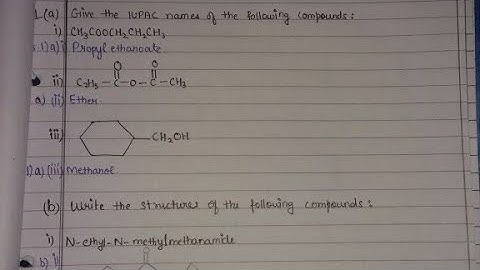 1.(a) Give the IUPAC names of the following compounds:
i) CH₃COOCH₂CH₂CH₃
1)a)i) Propyl ethanoate
ii) C₂H₅-C-O-C-CH₃
O O
a) (ii) Ether.
iii) CH₂OH
1) a) (iii) Methanol
(b) Write the structures of the following compounds:
i) N-ethyl-N-methylmethanamide
b) i)